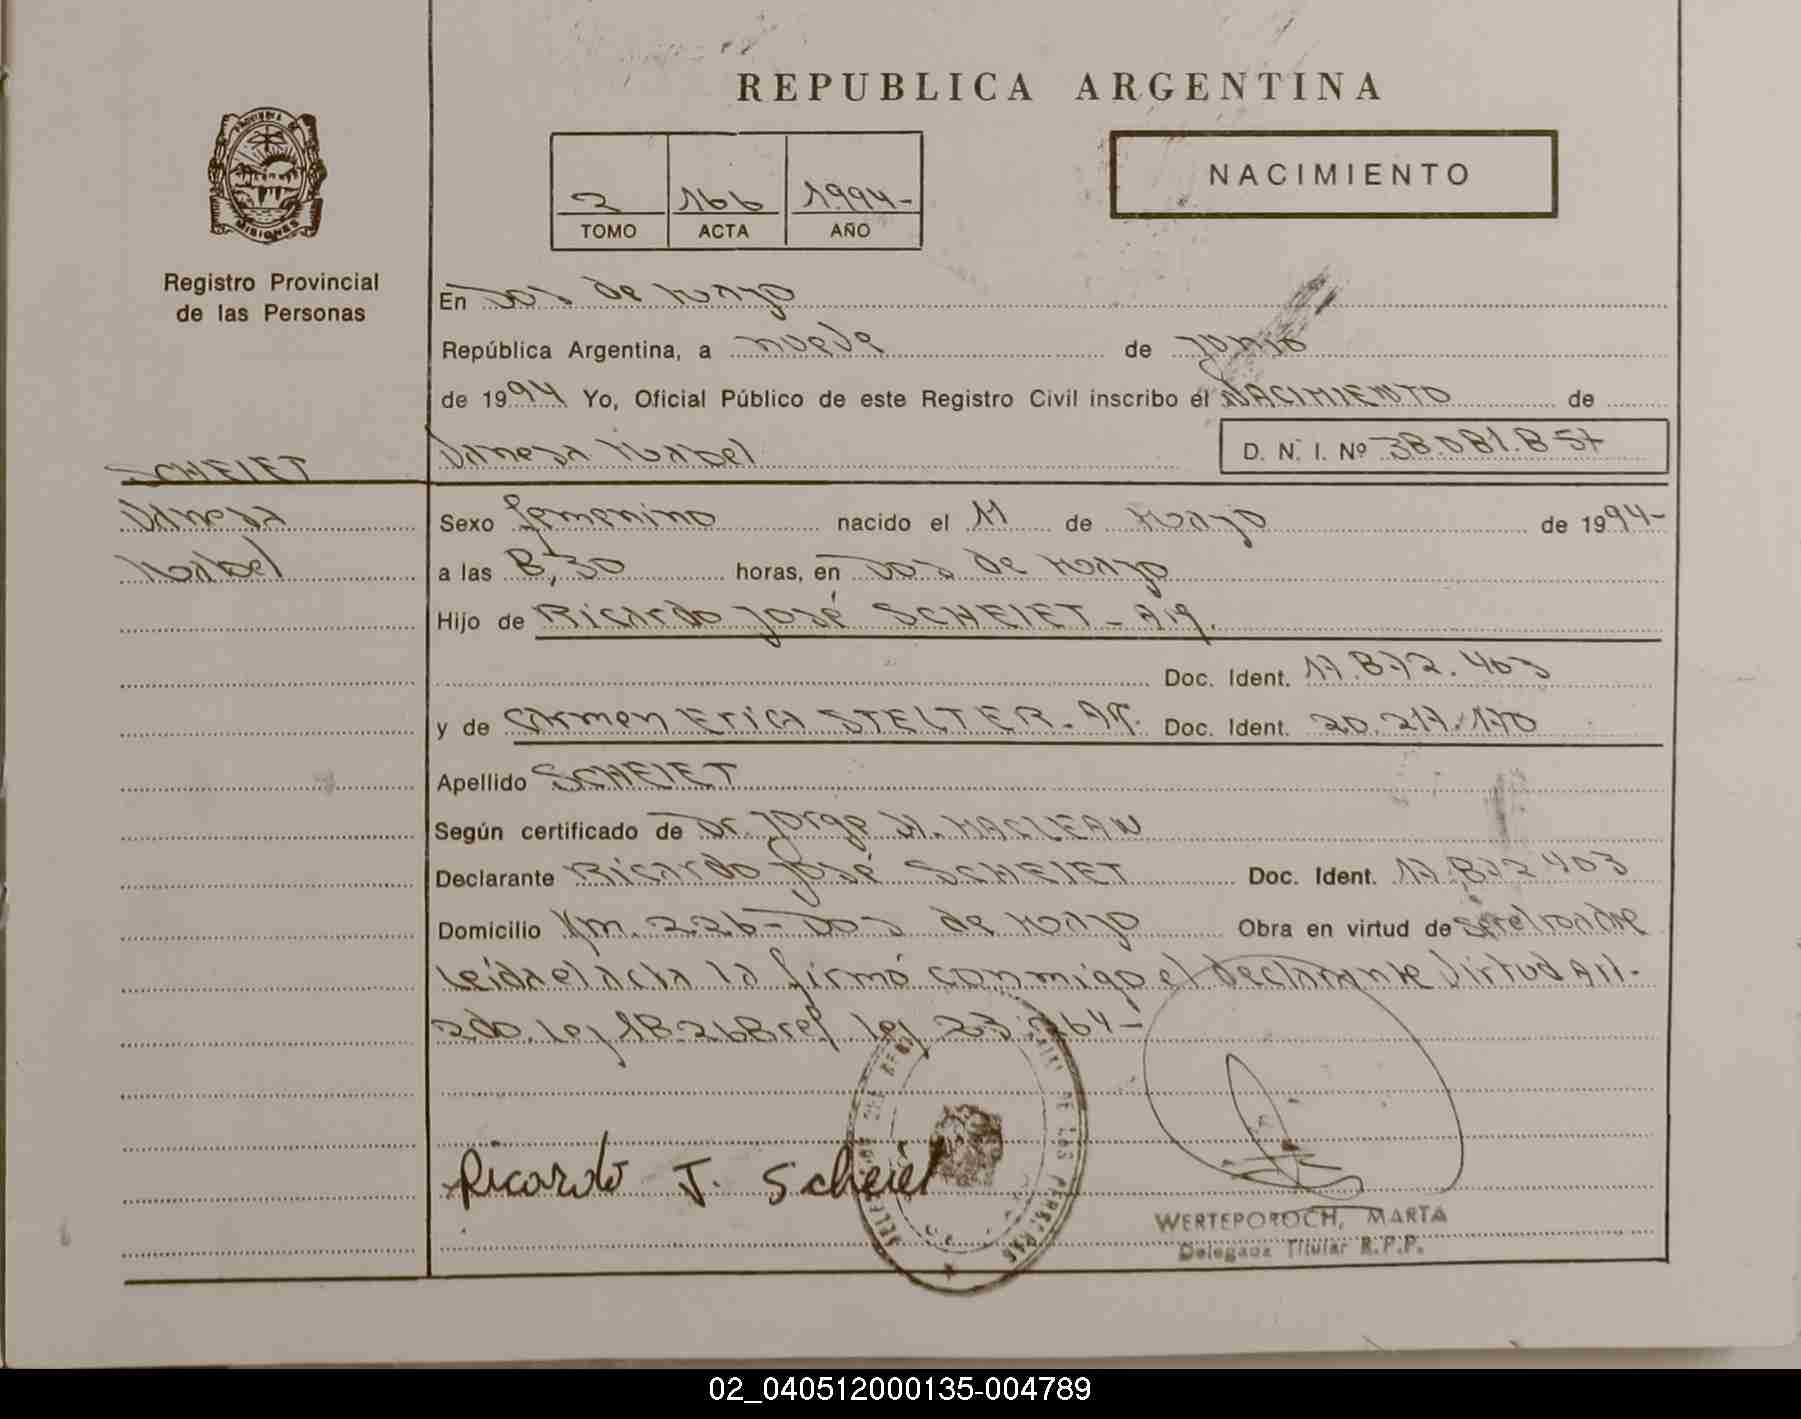 REPUBLICA ARGENTINA
PROVINCIA DE
MISIONES
NACIMIENTO
2 166 1994-
TOMO ACTA AÑO
Registro Provincial
de las Personas
En Dos de Mayo
República Argentina, a nueve de junio
de 1994 Yo, Oficial Público de este Registro Civil inscribo el NACIMIENTO de
Vanesa Mabel D. N. I. Nº 38.081.857
SCHEIET
Vanesa
Mabel
Sexo femenino nacido el 11 de Mayo de 1994-
a las 8,30 horas, en Dos de Mayo
Hijo de Ricardo José SCHEIET - Arg.
Doc. Ident. 17.872.403
y de Carmen Erica STELTER - Arg. Doc. Ident. 20.217.170
Apellido SCHEIET
Según certificado de Dr. Jorge H. MACLEAN
Declarante Ricardo José SCHEIET Doc. Ident. 17.872 403
Domicilio Km. 226 - Dos de Mayo Obra en virtud de ser el padre
Leída el acta la firmó conmigo el declarante Virtud Art.
2do. Ley 18.268 ref. Ley 23.264-
Ricardo J. Scheiet
DE LAS PERSONAS
WERTEPOROCH, MARTA
Delegada Titular R.P.P.
02_040512000135-004789